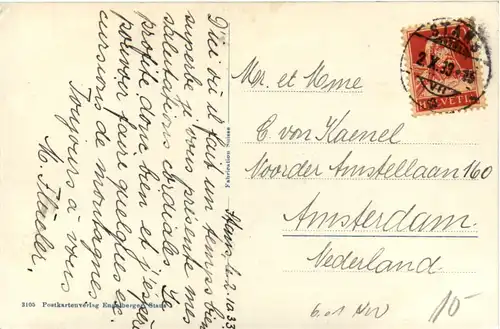 Stans, le 2.10.33
D'ici où il fait un temps bien
superbe je vous présente mes
salutations cordiales. Je
profite donc bien et j'espère
pouvoir faire quelques ex-
cursions de montagnes.
Toujours à vous
M.
Fabrication Suisse
3105 Postkartenverlag Engelberger, Stans
STANS
2.X.33
HELVETIA
Mr. et Mme
C. von Kaenel
Noorder Amstellaan 160
Amsterdam
Nederland
10-